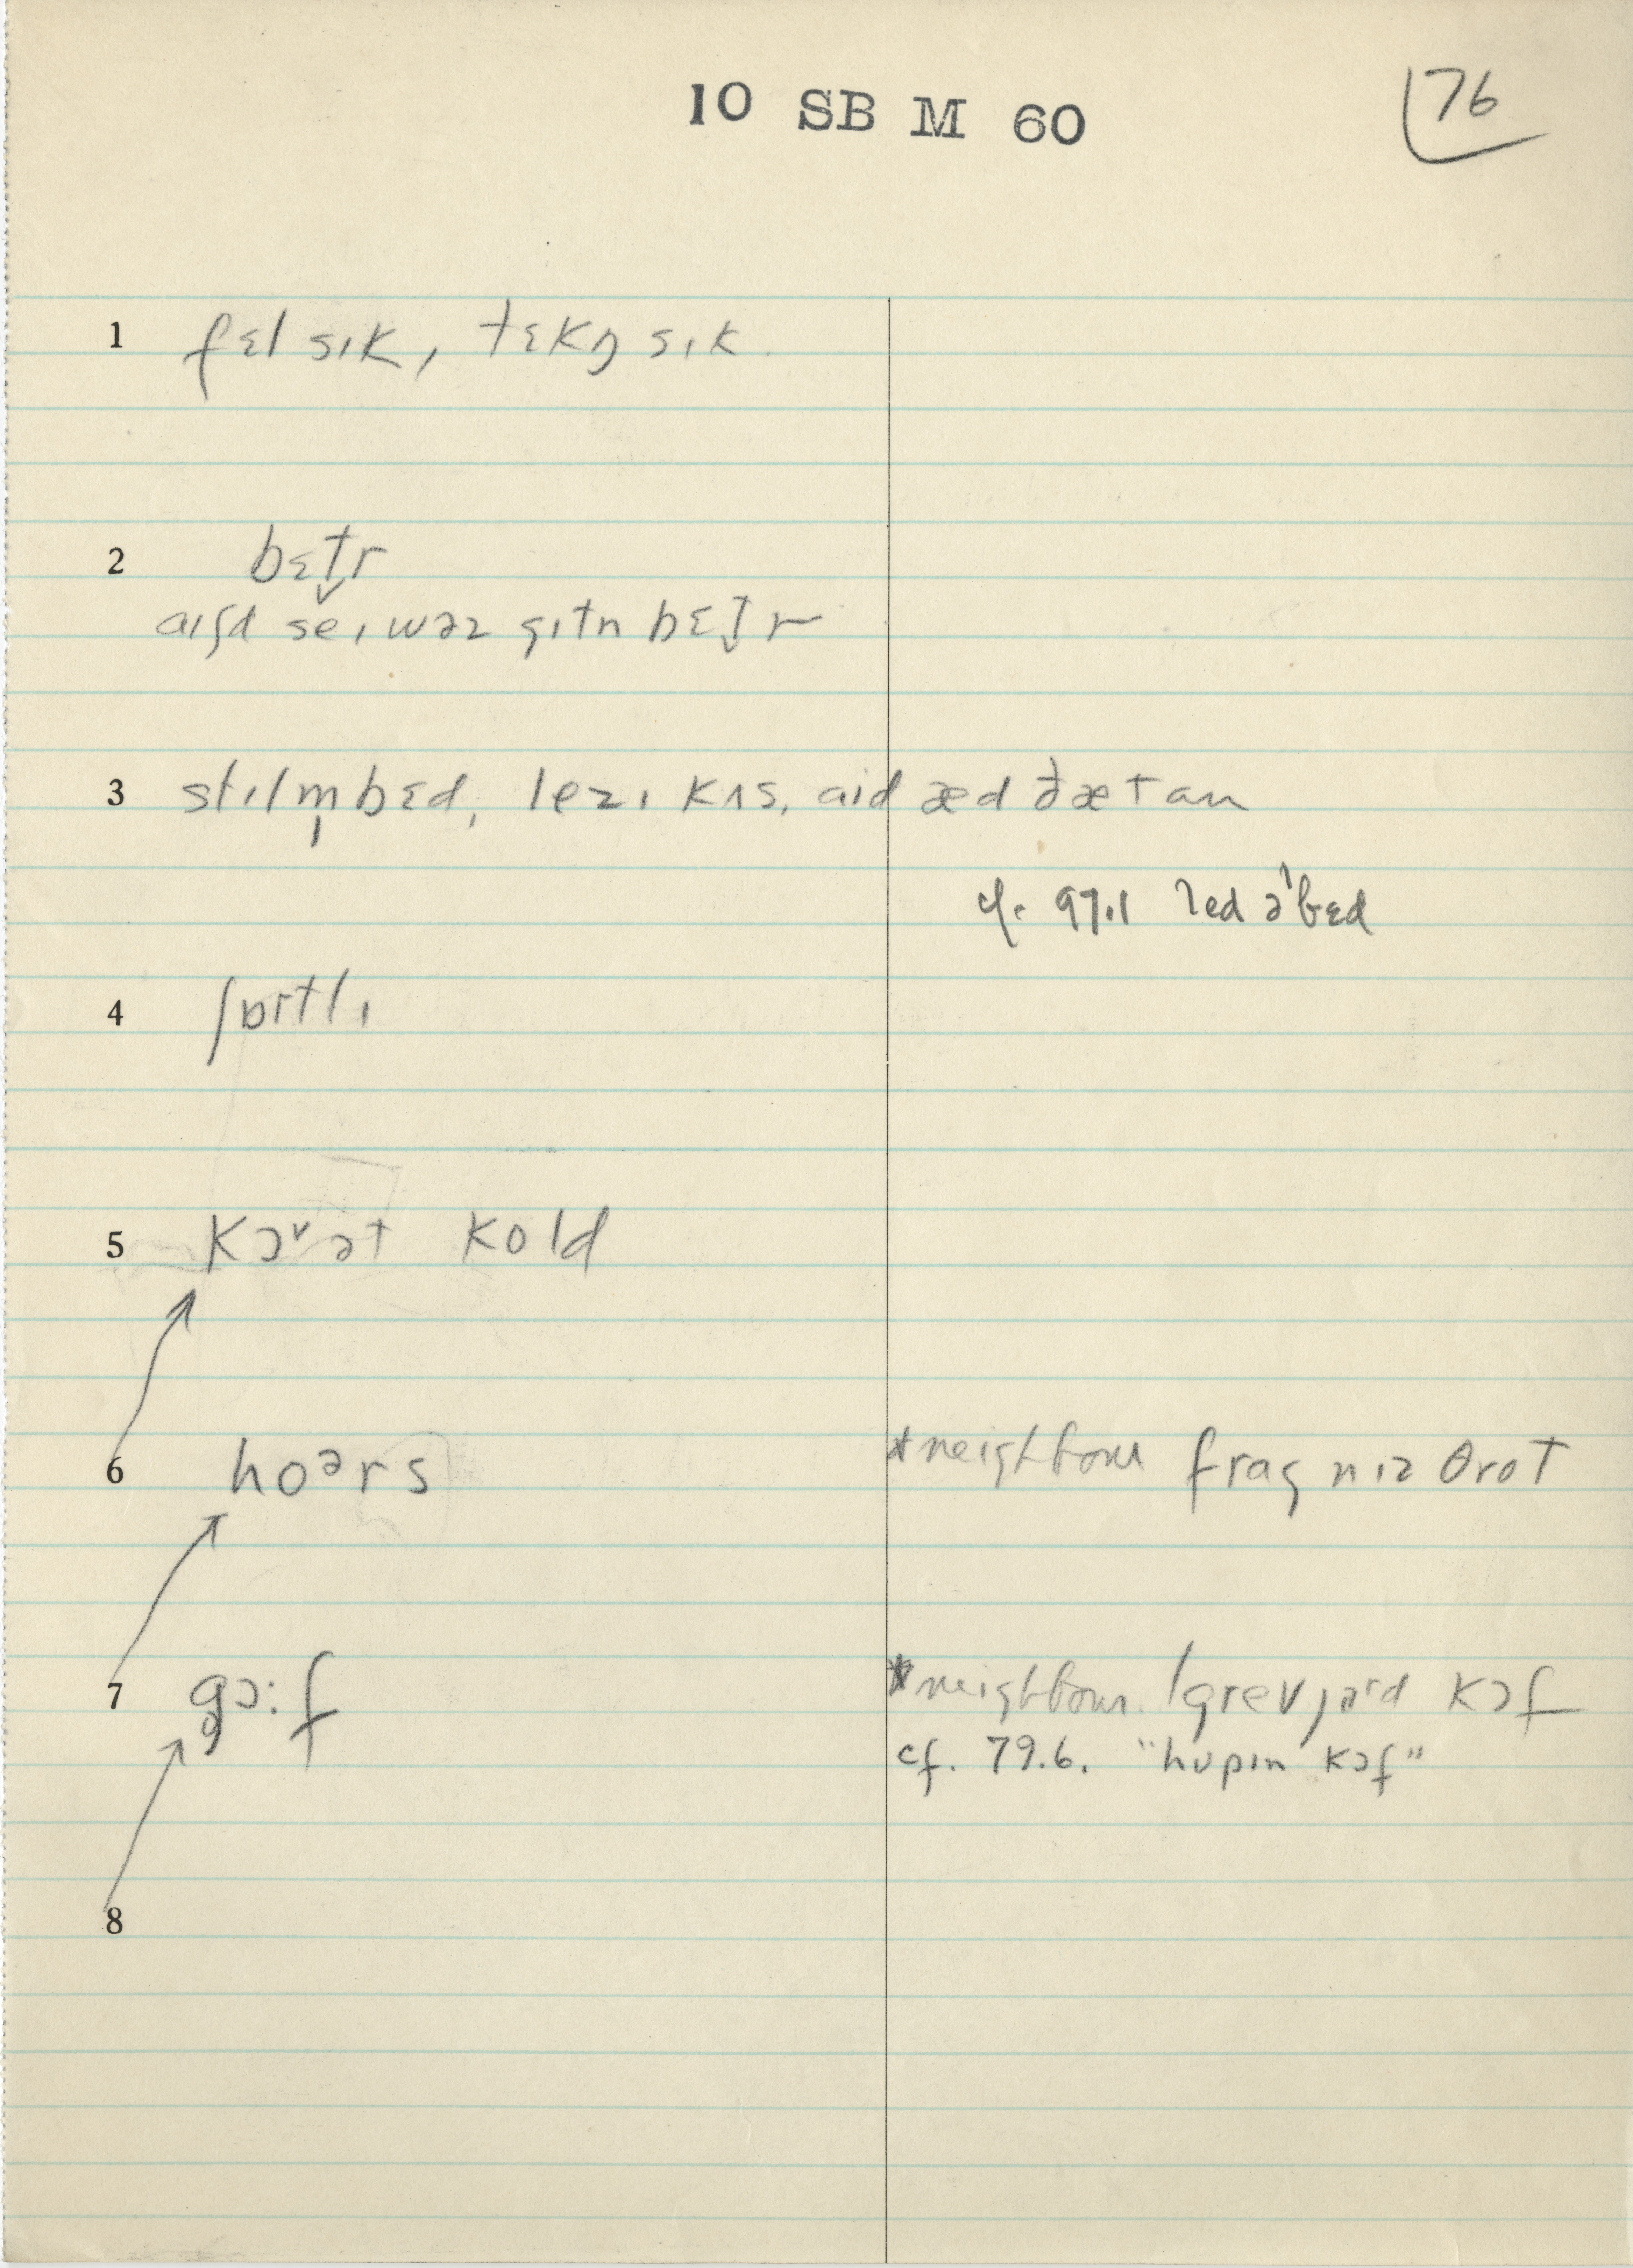 10 SB M 60
76
1 fɛl sɪk, tɛkŋ sɪk
2 bɛt̬r
aɪʃd se ɪ wəz gɪtn bɛt̬r
3 stɪl m̩ bɛd, lezɪ kʌs, aid æd ðæt an
cf. 97.1 led ə'bɛd
4 ʃɒrtlɪ
5 kɔˇ ət kold
6 hoᵊrs
*neighbour frag n ɪz θrot
7 gɔ:f
*neighbour. 'grevjəʳd kɔf
cf. 79.6. "hupɪn kɔf"
8